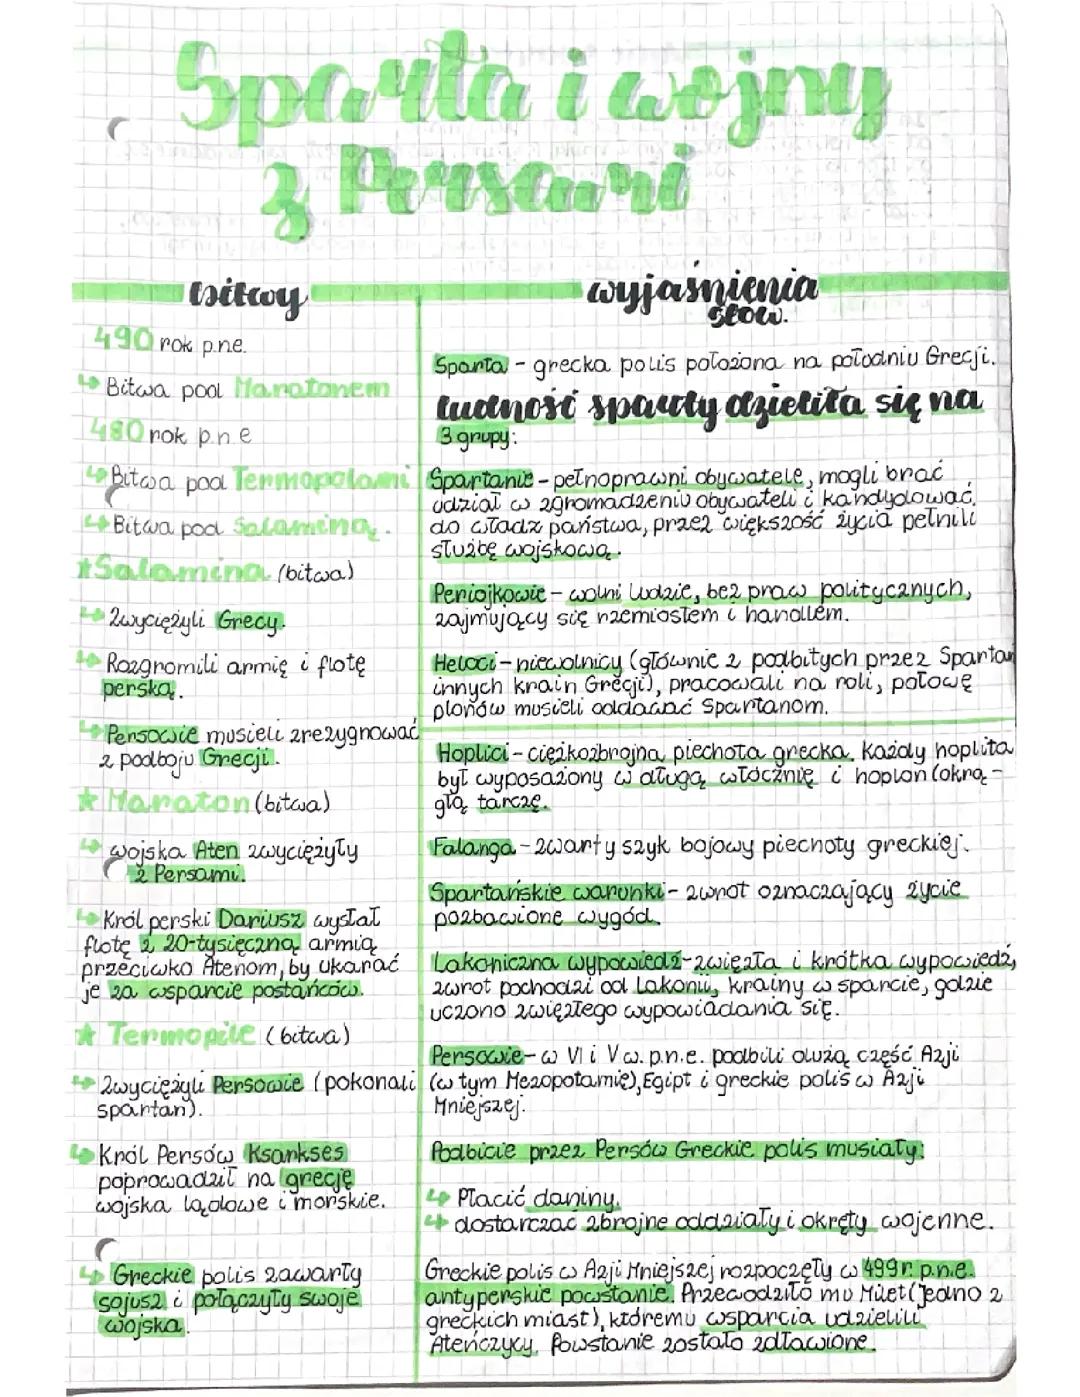 Sparta i wojny
z Persami
bitwy
490 rok p.n.e.
↳ Bitwa pod Maratonem
480 rok p.n.e
↳ Bitwa pod Termopolami
↳ Bitwa pod Salaminą.
★Salamina (bitwa)
↳ Zwyciężyli Grecy.
↳ Rozgromili armię i flotę
perską.
↳ Persowie musieli zrezygnować
z podboju Grecji.
★ Maraton (bitwa)
↳ wojska Aten zwyciężyły
z Persami.
↳ Król perski Dariusz wysłał
flotę z 20-tysięczną armią
przeciwko Atenom, by ukarać
je za wsparcie postańców.
★ Termopile (bitwa)
↳ Zwyciężyli Persowie (pokonali
spartan).
↳ Król Persów Ksarkses
poprowadził na grecję
wojska lądowe i morskie.
↳ Greckie polis zawarły
sojusz i połączyły swoje
wojska.
wyjaśnienia
słow.
Sparta - grecka polis położona na południu Grecji.
ludność sparty dzieliła się na
3 grupy:
Spartanie - pełnoprawni obywatele, mogli brać
udział w zgromadzeniu obywateli i kandydować
do władz państwa, przez większość życia pełnili
służbę wojskową.
Periojkowie - wolni ludzie, bez praw politycznych,
zajmujący się rzemiosłem i handlem.
Heloci - niewolnicy (głównie z podbitych przez Spartan
innych krain Grecji), pracowali na roli, połowę
plonów musieli oddawać Spartanom.
Hoplici - ciężkozbrojna piechota grecka. Każdy hoplita
był wyposażony w długą włócznię i hoplon (okrą-
głą tarczę.
Falanga - zwarty szyk bojowy piechoty greckiej.
Spartańskie warunki - zwrot oznaczający życie
pozbawione wygód.
Lakoniczna wypowiedź - zwięzła i krótka wypowiedź,
zwrot pochodzi od Lakonii, krainy w sparcie, gdzie
uczono zwięzłego wypowiadania się.
Persowie - w VI i V w. p.n.e. podbili dużą część Azji
(w tym Mezopotamię), Egipt i greckie polis w Azji
Mniejszej.
Podbicie przez Persów Greckie polis musiały:
↳ Płacić daniny.
↳ dostarczać zbrojne oddziały i okręty wojenne.
Greckie polis w Azji Mniejszej rozpoczęły w 499 r. p.n.e.
antyperskie powstanie. Przewodziło mu Milet (jedno z
greckich miast), któremu wsparcia udzielili
Ateńczycy. Powstanie zostało zdławione.